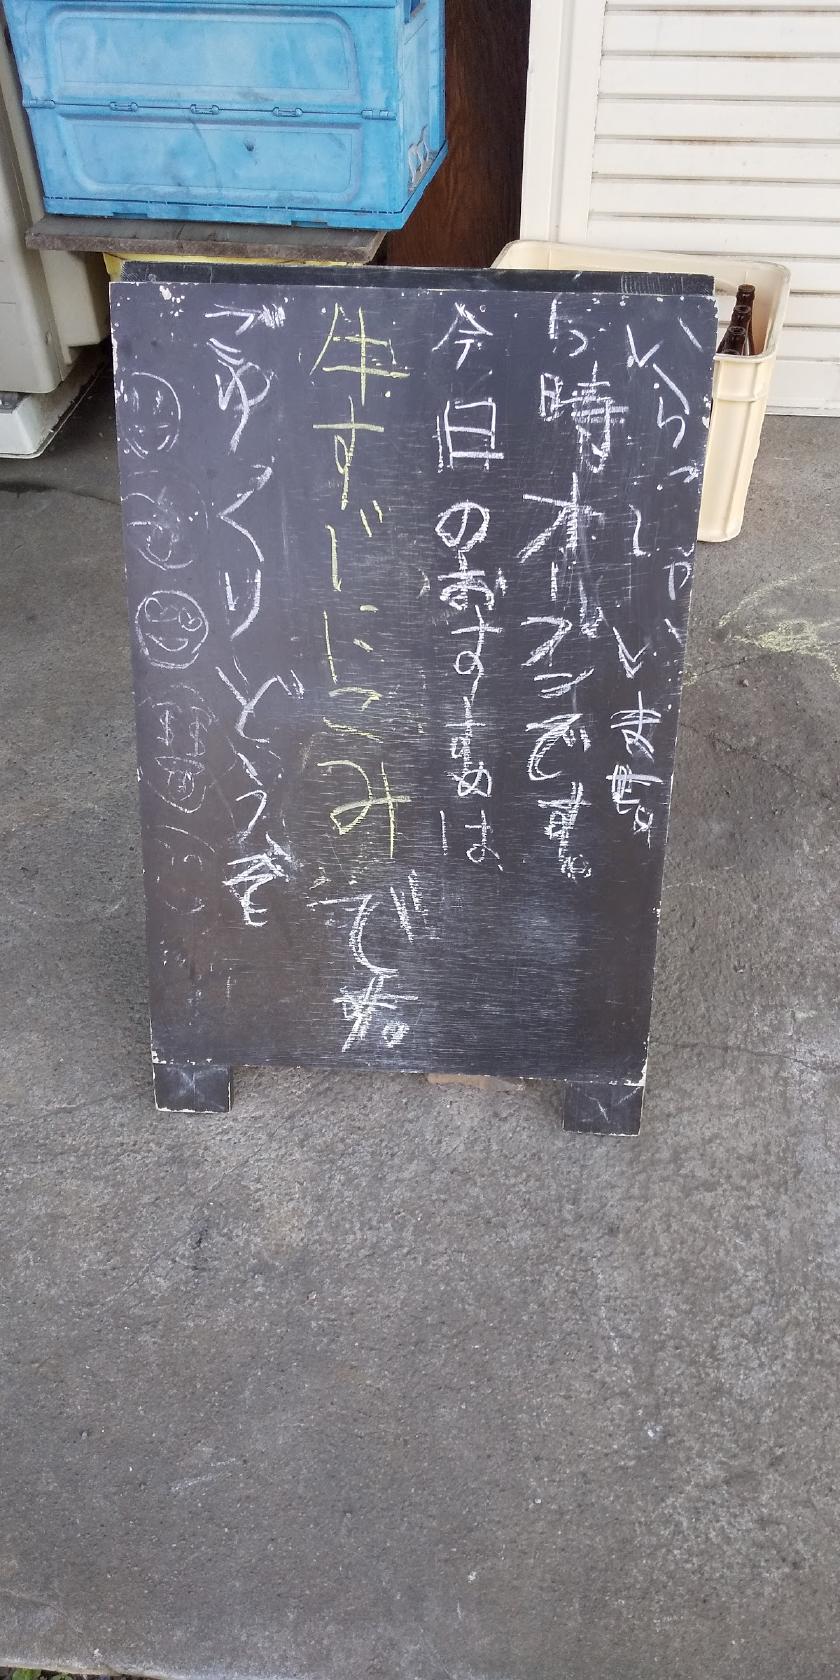 いらっしゃいませ。
5時オープンです。
今日のおすすめは
牛すじにこみです。
ごゆっくりどうぞ